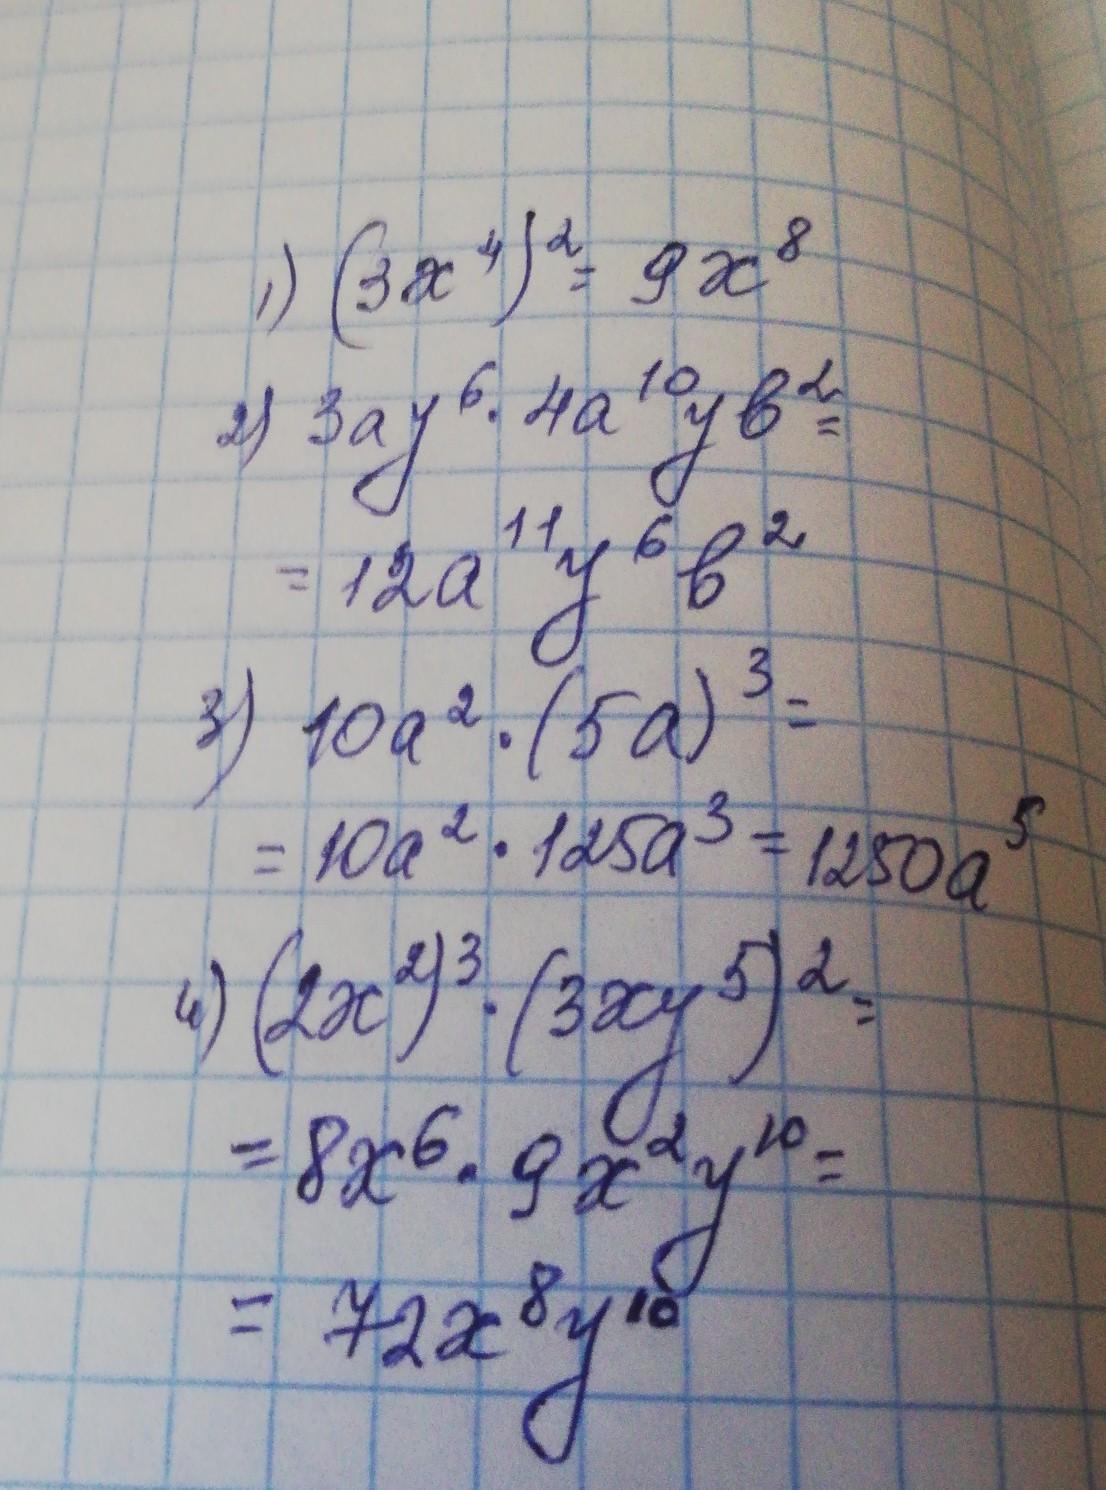 1) (3x⁴)² = 9x⁸
2) 3ay⁶ · 4a¹⁰yb² =
= 12a¹¹y⁶b²
3) 10a² · (5a)³ =
= 10a² · 125a³ = 1250a⁵
4) (2x²)³ · (3xy⁵)² =
= 8x⁶ · 9x²y¹⁰ =
= 72x⁸y¹⁰